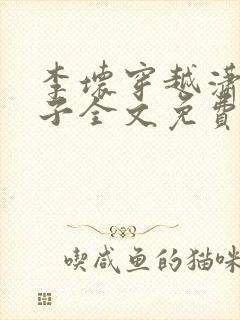 李壞穿越瀟
子全文免費
喫咸魚的猫咪